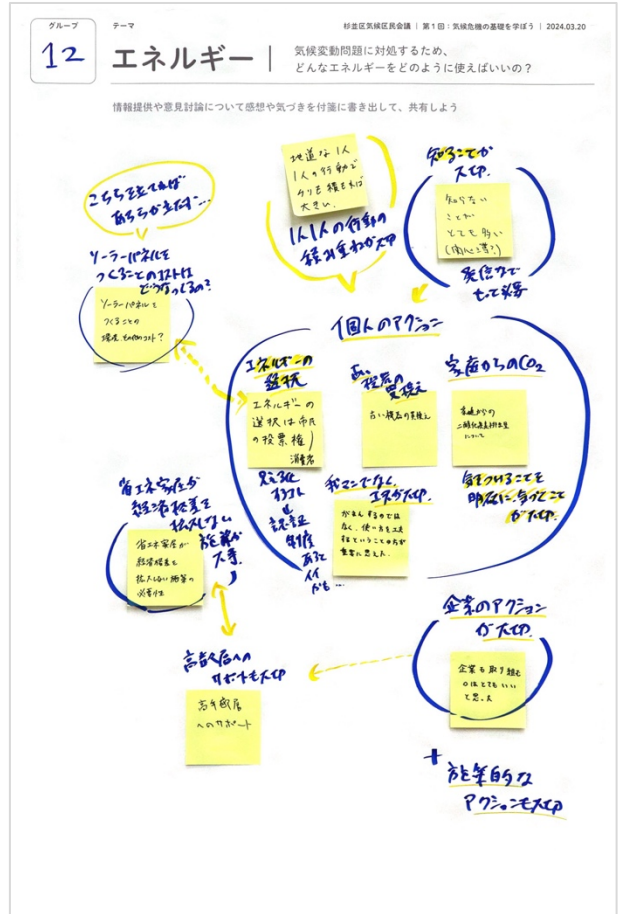 グループ
12
テーマ
エネルギー
杉並区気候区民会議 | 第1回:気候危機の基礎を学ぼう | 2024.03.20
気候変動問題に対処するため、
どんなエネルギーをどのように使えばいいの?
情報提供や意見討論について感想や気づきを付箋に書き出して、共有しよう
こちらを立てれば
あちらが立たず…
ソーラーパネルを
つくることのコストは
どうなってるの?
ソーラーパネルを
つくることの
環境、その他のコスト?
地道な1人
1人の行動で
チリも積もれば
大きい。
1人1人の行動の
積み重ねが大切
知ることが
大切。
知らない
ことが
とても多い
(関心薄?)
発信など
もっと必要
個人のアクション
エネルギーの
選択
エネルギーの
選択は市民
の投票権
消費者
見える化
コスト
認証
制度
あると
イイ
かも…
古い機器の
買換え
古い機器の買換え
家庭からのCO2
家庭からの
二酸化炭素排出量
について
気をつけることを
明確に、気づくこと
が大切。
我マンでなく、
工夫が大切。
がまんするのでは
なく、使い方を工夫
するということの方が
重要に思えた。
省エネ家屋が
経済格差を
拡大しない
施策が
大事。
省エネ家屋が
経済格差を
拡大しない施策の
必要性
高齢者層への
サポートも大切
高年齢層
へのサポート
企業のアクション
が大切。
企業も取り組む
のはとてもいい
と思った
+
施策的な
アクションも大切